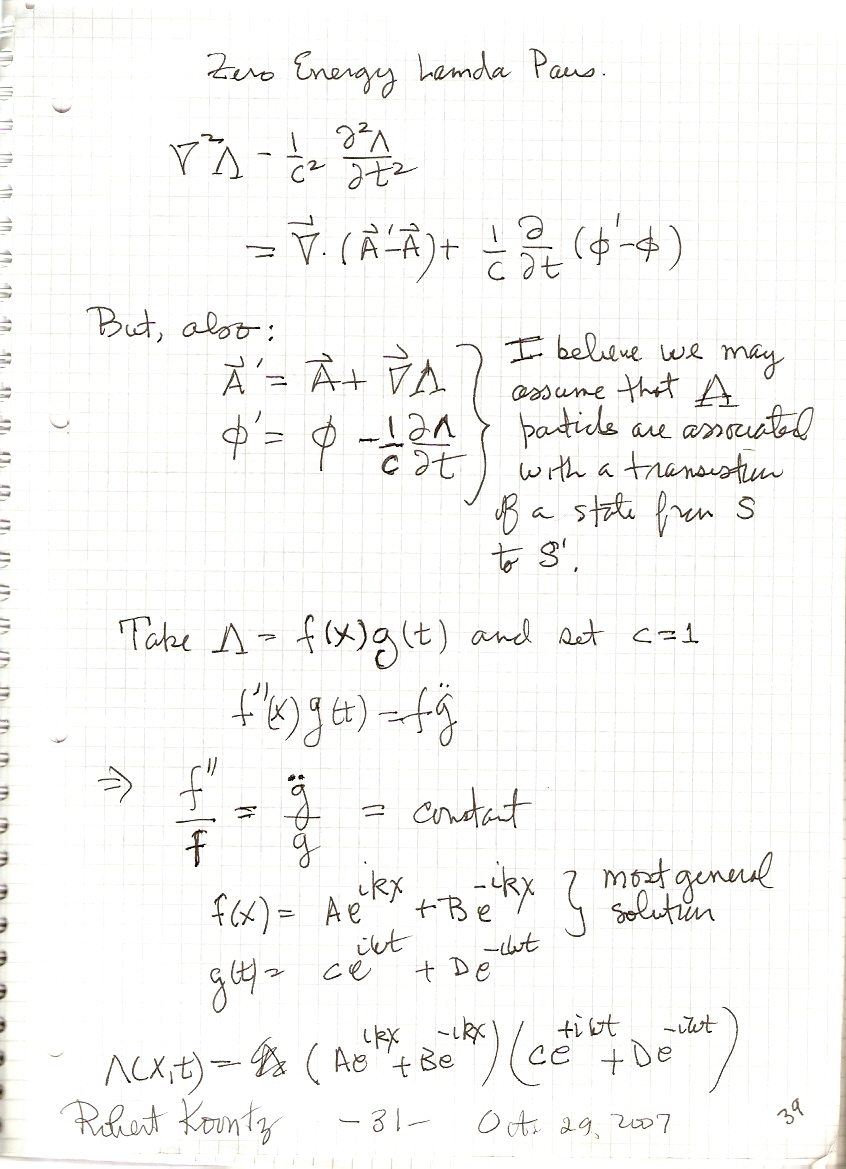 Zero Energy Lamda Pairs.
∇²Λ - 1/c² ∂²Λ/∂t²
= ∇⃗·(A⃗'-A⃗) + 1/c ∂/∂t (ϕ'-ϕ)
But, also:
A⃗' = A⃗ + ∇⃗Λ
ϕ' = ϕ - 1/c ∂Λ/∂t
I believe we may
assume that Λ
particles are associated
with a transistion
of a state from S
to S'.
Take Λ = f(x)g(t) and set c=1
f''(x)g(t) = fg̈
⇒ f''/f = g̈/g = constant
f(x) = Ae^{ikx} + Be^{-ikx}
g(t) = Ce^{iωt} + De^{-iωt}
} most general
solution
Λ(x,t) = (Ae^{ikx} + Be^{-ikx})(Ce^{+iωt} + De^{-iωt})
Robert Koontz -31- Oct. 29, 2007 39